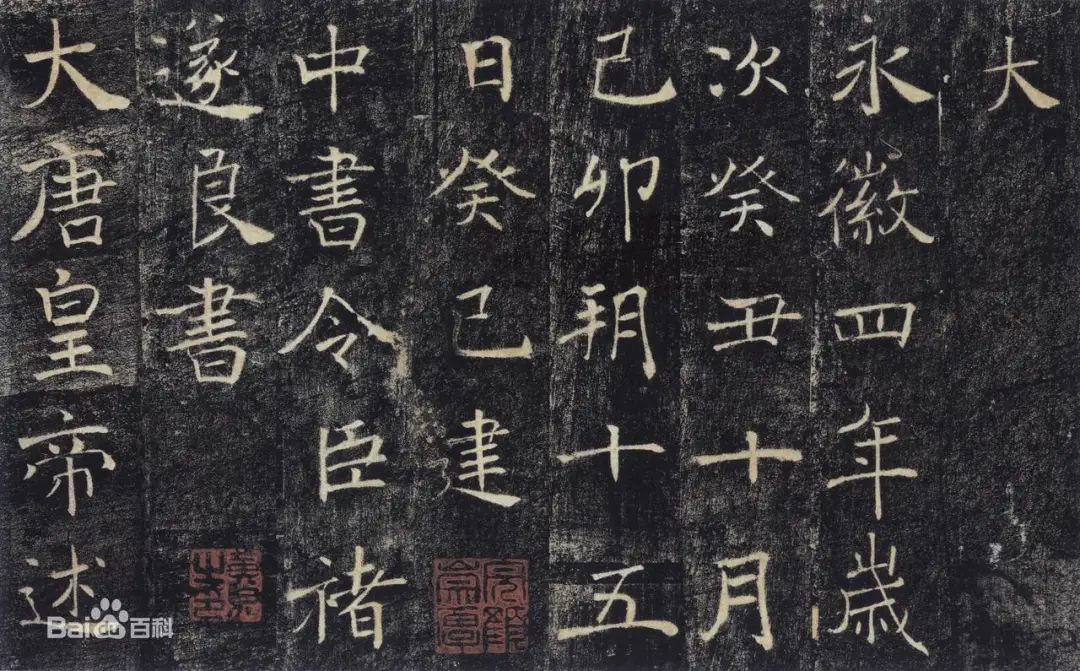 大
永徽四年歲
次癸丑十月
己卯朔十五
日癸巳建
中書令臣褚
遂良書
大唐皇帝述
Baidu百科